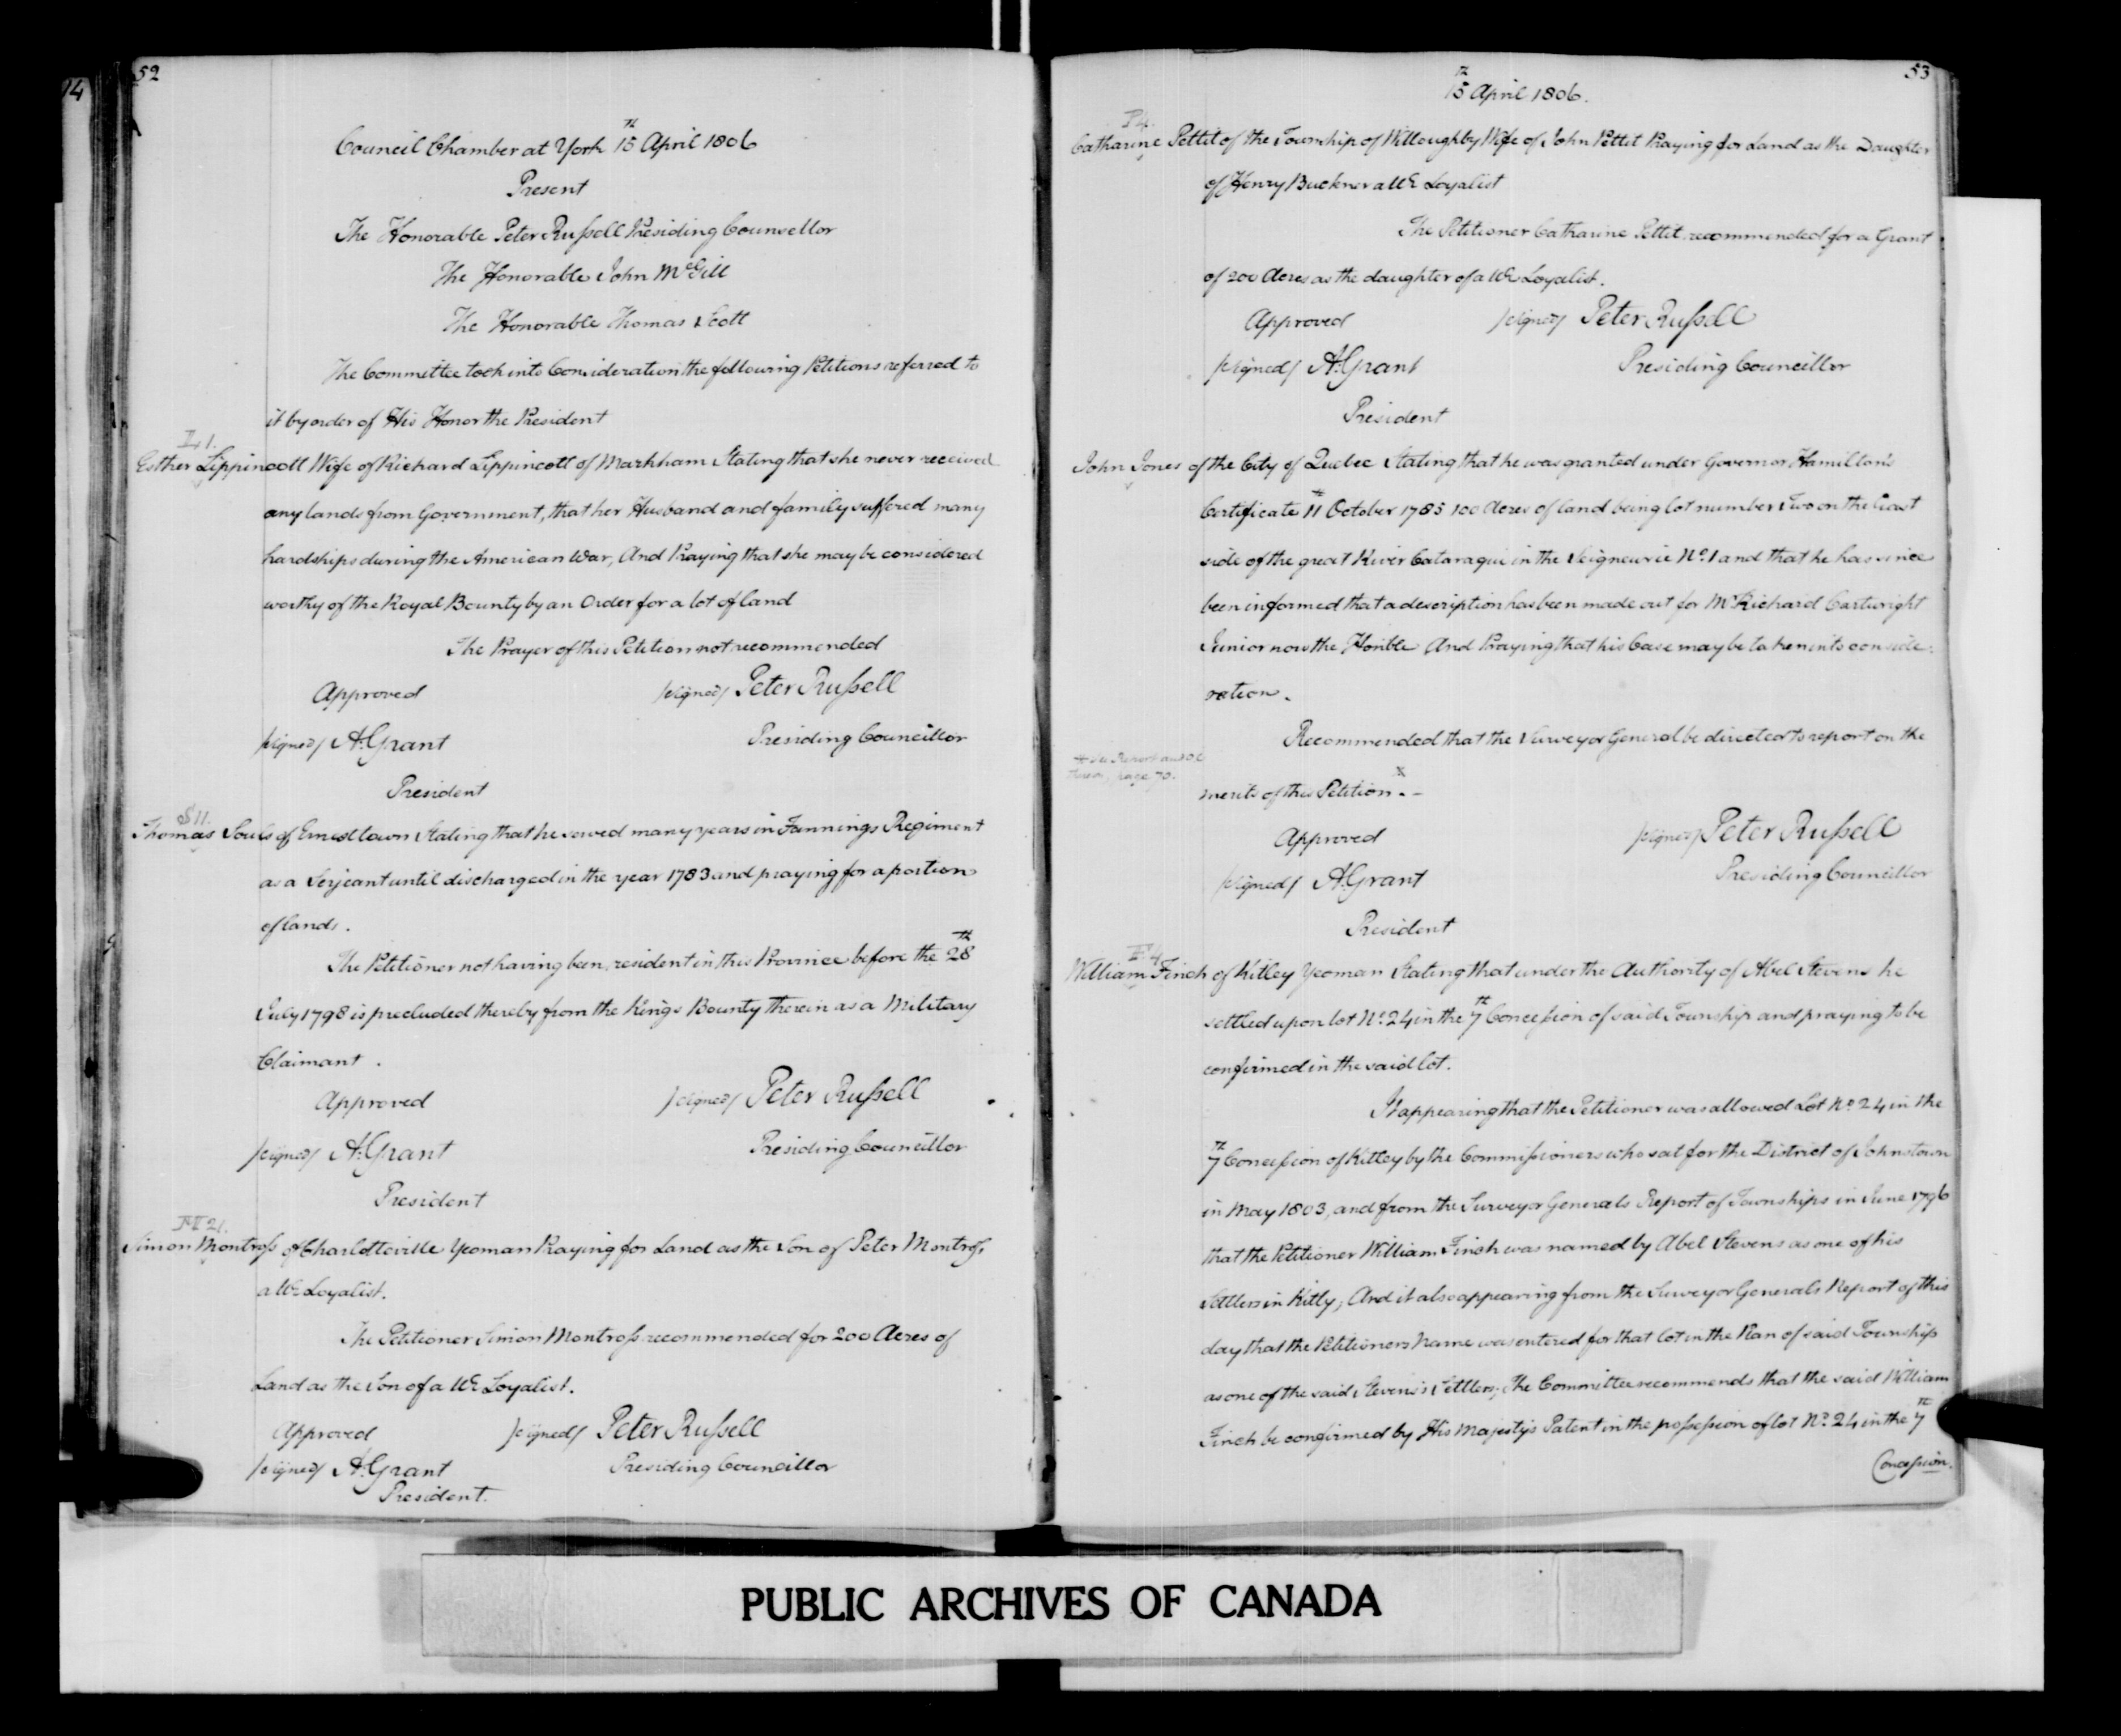 52
Council Chamber at York 15th April 1806
Present
The Honorable Peter Rußell Presiding Counsellor
The Honorable John McGill
The Honorable Thomas Scott
The Committee took into Consideration the following Petitions referred to
it by order of His Honor the President
L 1.
Esther Lippincott Wife of Richard Lippincott of Markham Stating that she never received
any lands from Government, that her Husband and family suffered many
hardships during the American War, And Praying that she may be considered
worthy of the Royal Bounty by an Order for a lot of land
The Prayer of this Petition not recommended
Approved /signed/ Peter Rußell
/signed/ A. Grant Presiding Councillor
President
S 11.
Thomas Souls of Ernest town Stating that he served many years in Fannings Regiment
as a Serjeant until discharged in the year 1783 and praying for a portion
of lands.
The Petitioner not having been resident in this Province before the 28th
July 1798 is precluded thereby from the Kings Bounty therein as a Military
Claimant.
Approved /signed/ Peter Rußell
/signed/ A. Grant Presiding Councillor
President
M 21.
Simon Montroß of Charlotteville Yeoman Praying for Land as the Son of Peter Montroß
a UE Loyalist.
The Petitioner Simon Montroß recommended for 200 Acres of
Land as the Son of a UE Loyalist.
Approved /signed/ Peter Rußell
/signed/ A. Grant Presiding Councillor
President.
53
15th April 1806.
P 4.
Catharine Pettit of the Township of Willoughby Wife of John Pettit Praying for Land as the Daughter
of Henry Buckner a UE Loyalist
The Petitioner Catharine Pettit recommended for a Grant
of 200 Acres as the daughter of a UE Loyalist.
Approved /signed/ Peter Rußell
/signed/ A. Grant Presiding Councillor
President
John Jones of the City of Quebec Stating that he was granted under Governor Hamilton's
Certificate 11th October 1785 100 Acres of land being lot number Two on the East
side of the great River Cataraqui in the Seigneurie No. 1 and that he has since
been informed that a description has been made out for Mr Richard Cartwright
Junior now the Honble And Praying that his Case may be taken into conside-
ration.
Recommended that the Surveyor General be directed to report on the
merits of this Petition. - x
See Report and O.C.
thereon, page 70.
Approved /signed/ Peter Rußell
/signed/ A. Grant Presiding Councillor
President
F 4
William Finch of Kitley Yeoman Stating that under the Authority of Abel Stevens he
settled upon lot No. 24 in the 7th Conceßion of said Township and praying to be
confirmed in the said lot.
It appearing that the Petitioner was allowed Lot No. 24 in the
7th Conceßion of Kitley by the Commißioners who sat for the District of Johnstown
in May 1803, and from the Surveyor Generals Report of Townships in June 1796
that the Petitioner William Finch was named by Abel Stevens as one of his
Settlers in Kitly; And it also appearing from the Surveyor Generals Report of this
day that the Petitioners Name was entered for that lot in the Plan of said Township
as one of the said Stevens's Settlers, The Committee recommends that the said William
Finch be confirmed by His Majestys Patent in the poßeßion of lot No. 24 in the 7th
Conceßion.
PUBLIC ARCHIVES OF CANADA